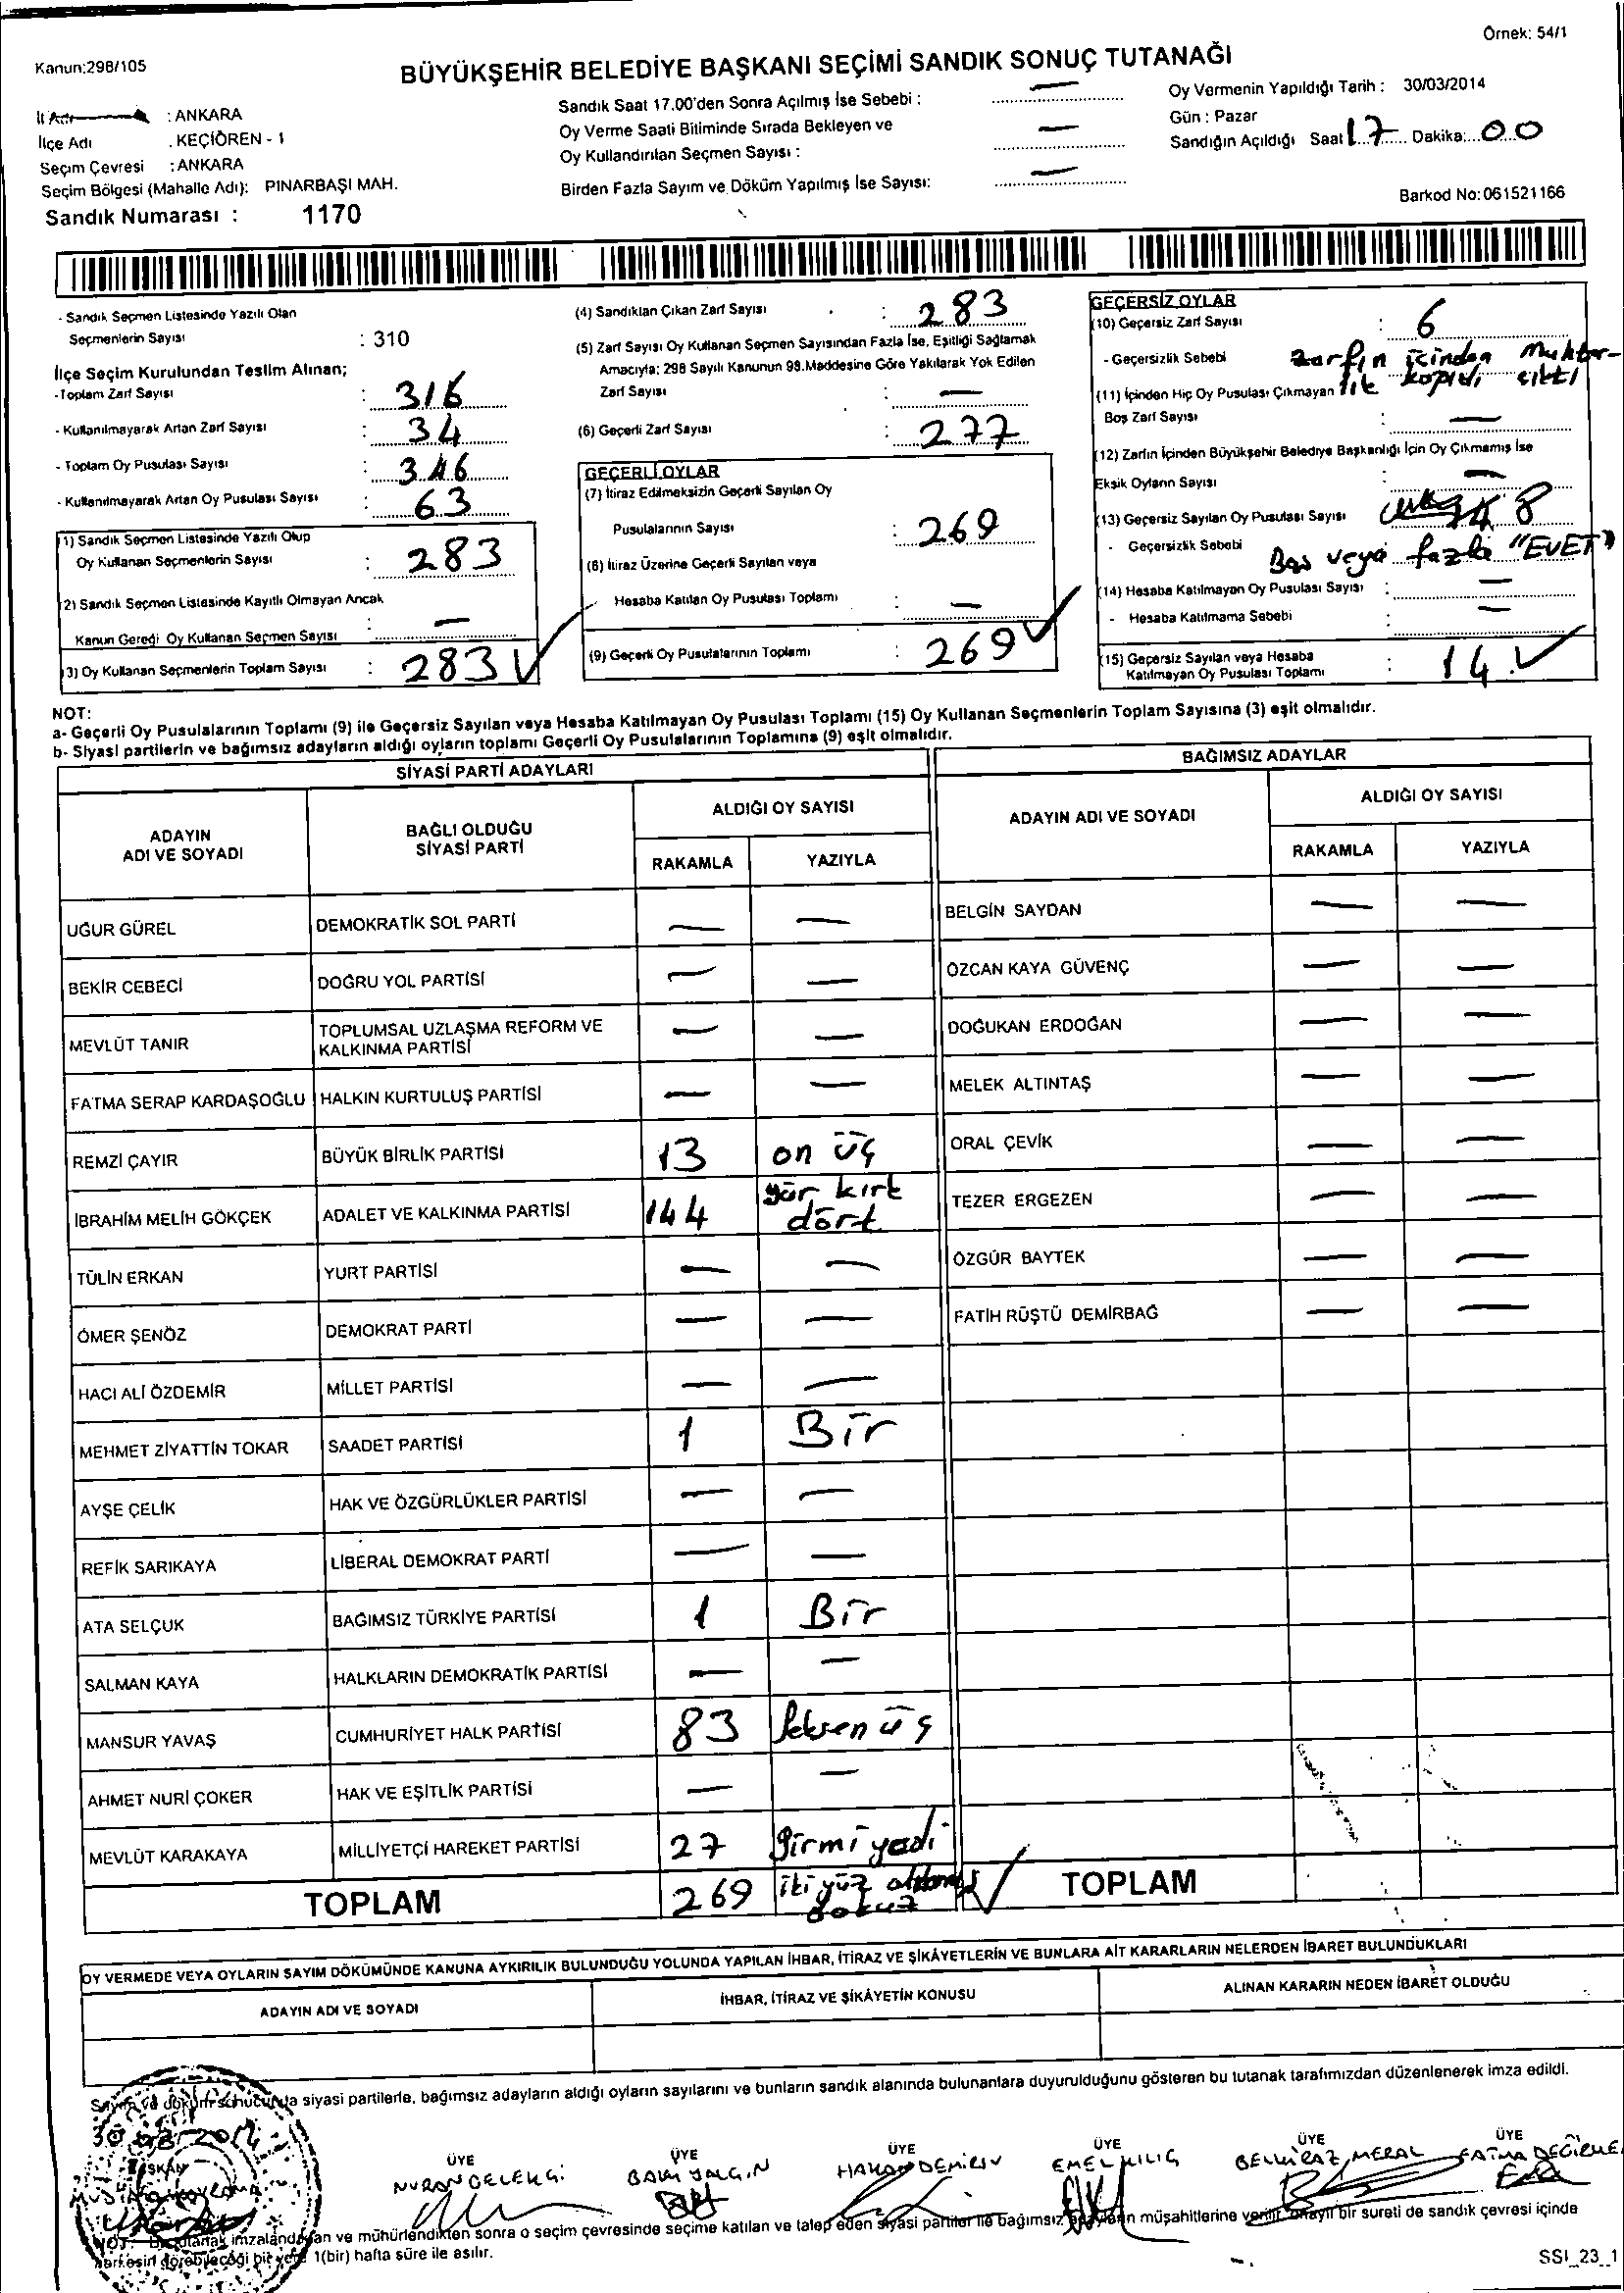 Örnek: 54/1
Kanun:298/105
BÜYÜKŞEHİR BELEDİYE BAŞKANI SEÇİMİ SANDIK SONUÇ TUTANAĞI
İl Adı : ANKARA
İlçe Adı : KEÇİÖREN - 1
Seçim Çevresi : ANKARA
Seçim Bölgesi (Mahalle Adı): PINARBAŞI MAH.
Sandık Numarası : 1170
Sandık Saat 17.00'den Sonra Açılmış İse Sebebi : —
Oy Verme Saati Bitiminde Sırada Bekleyen ve
Oy Kullandırılan Seçmen Sayısı : —
Birden Fazla Sayım ve Döküm Yapılmış İse Sayısı: —
Oy Vermenin Yapıldığı Tarih : 30/03/2014
Gün : Pazar
Sandığın Açıldığı Saat 17 Dakika: 00
Barkod No: 061521166
- Sandık Seçmen Listesinde Yazılı Olan
Seçmenlerin Sayısı : 310
İlçe Seçim Kurulundan Teslim Alınan;
-Toplam Zarf Sayısı : 316
- Kullanılmayarak Artan Zarf Sayısı : 34
- Toplam Oy Pusulası Sayısı : 346
- Kullanılmayarak Artan Oy Pusulası Sayısı : 63
(1) Sandık Seçmen Listesinde Yazılı Olup
Oy Kullanan Seçmenlerin Sayısı : 283
(2) Sandık Seçmen Listesinde Kayıtlı Olmayan Ancak
Kanun Geregi Oy Kullanan Seçmen Sayısı : —
(3) Oy Kullanan Seçmenlerin Toplam Sayısı : 283 ✓
(4) Sandıktan Çıkan Zarf Sayısı : 283
(5) Zarf Sayısı Oy Kullanan Seçmen Sayısından Fazla İse, Eşitliği Sağlamak
Amacıyla; 298 Sayılı Kanunun 98.Maddesine Göre Yakılarak Yok Edilen
Zarf Sayısı : —
(6) Geçerli Zarf Sayısı : 277
GEÇERLİ OYLAR
(7) İtiraz Edilmeksizin Geçerli Sayılan Oy
Pusulalarının Sayısı : 269
(8) İtiraz Üzerine Geçerli Sayılan veya
Hesaba Katılan Oy Pusulası Toplamı : —
(9) Geçerli Oy Pusulalarının Toplamı : 269 ✓
GEÇERSİZ OYLAR
(10) Geçersiz Zarf Sayısı : 6
- Geçersizlik Sebebi zarfın içinden Muhtar-
lık çıktı
(11) İçinden Hiç Oy Pusulası Çıkmayan
Boş Zarf Sayısı : —
(12) Zarfın İçinden Büyükşehir Belediye Başkanlığı İçin Oy Çıkmamış İse
Eksik Oyların Sayısı —
(13) Geçersiz Sayılan Oy Pusulası Sayısı 8
- Geçersizlik Sebebi Boş veya fazla "EVET"
(14) Hesaba Katılmayan Oy Pusulası Sayısı : —
- Hesaba Katılmama Sebebi : —
(15) Geçersiz Sayılan veya Hesaba
Katılmayan Oy Pusulası Toplamı : 14 ✓
NOT:
a- Geçerli Oy Pusulalarının Toplamı (9) ile Geçersiz Sayılan veya Hesaba Katılmayan Oy Pusulası Toplamı (15) Oy Kullanan Seçmenlerin Toplam Sayısına (3) eşit olmalıdır.
b- Siyasi partilerin ve bağımsız adayların aldığı oyların toplamı Geçerli Oy Pusulalarının Toplamına (9) eşit olmalıdır.
SİYASİ PARTİ ADAYLARI
ADAYIN ADI VE SOYADI BAĞLI OLDUĞU SİYASİ PARTİ ALDIĞI OY SAYISI RAKAMLA YAZIYLA
UĞUR GÜREL DEMOKRATİK SOL PARTİ — —
BEKİR CEBECİ DOĞRU YOL PARTİSİ — —
MEVLÜT TANIR TOPLUMSAL UZLAŞMA REFORM VE KALKINMA PARTİSİ — —
FATMA SERAP KARDAŞOĞLU HALKIN KURTULUŞ PARTİSİ — —
REMZİ ÇAYIR BÜYÜK BİRLİK PARTİSİ 13 on üç
İBRAHİM MELİH GÖKÇEK ADALET VE KALKINMA PARTİSİ 144 yüz kırk dört
TÜLİN ERKAN YURT PARTİSİ — —
ÖMER ŞENÖZ DEMOKRAT PARTİ — —
HACI ALİ ÖZDEMİR MİLLET PARTİSİ — —
MEHMET ZİYATTİN TOKAR SAADET PARTİSİ 1 Bir
AYŞE ÇELİK HAK VE ÖZGÜRLÜKLER PARTİSİ — —
REFİK SARIKAYA LİBERAL DEMOKRAT PARTİ — —
ATA SELÇUK BAĞIMSIZ TÜRKİYE PARTİSİ 1 Bir
SALMAN KAYA HALKLARIN DEMOKRATİK PARTİSİ — —
MANSUR YAVAŞ CUMHURİYET HALK PARTİSİ 83 Seksen üç
AHMET NURİ ÇOKER HAK VE EŞİTLİK PARTİSİ — —
MEVLÜT KARAKAYA MİLLİYETÇİ HAREKET PARTİSİ 27 Yirmi yedi
TOPLAM 269 iki yüz altmış dokuz ✓
BAĞIMSIZ ADAYLAR
ADAYIN ADI VE SOYADI ALDIĞI OY SAYISI RAKAMLA YAZIYLA
BELGİN SAYDAN — —
ÖZCAN KAYA GÜVENÇ — —
DOĞUKAN ERDOĞAN — —
MELEK ALTINTAŞ — —
ORAL ÇEVİK — —
TEZER ERGEZEN — —
ÖZGÜR BAYTEK — —
FATİH RÜŞTÜ DEMİRBAĞ — —
TOPLAM
OY VERMEDE VEYA OYLARIN SAYIM DÖKÜMÜNDE KANUNA AYKIRILIK BULUNDUĞU YOLUNDA YAPILAN İHBAR, İTİRAZ VE ŞİKÂYETLERİN VE BUNLARA AİT KARARLARIN NELERDEN İBARET BULUNDUKLARI
ADAYIN ADI VE SOYADI İHBAR, İTİRAZ VE ŞİKÂYETİN KONUSU ALINAN KARARIN NEDEN İBARET OLDUĞU
Sayım ve döküm sonucunda siyasi partilerle, bağımsız adayların aldığı oyların sayılarını ve bunların sandık alanında bulunanlara duyurulduğunu gösteren bu tutanak tarafımızdan düzenlenerek imza edildi.
30 03 2014
BAŞKAN ÜYE ÜYE ÜYE ÜYE ÜYE ÜYE
BAKİ YALGIN HAKAN DEMİREL EMEL KILIÇ MERAL FATMA
NOT: Bu tutanak imzalandıktan ve mühürlendikten sonra o seçim çevresinde seçime katılan ve talep eden siyasi partiler ile bağımsız adayların müşahitlerine verilir. Onaylı bir sureti de sandık çevresi içinde
herkesin görebileceği bir yere 1(bir) hafta süre ile asılır.
SSI_23_1